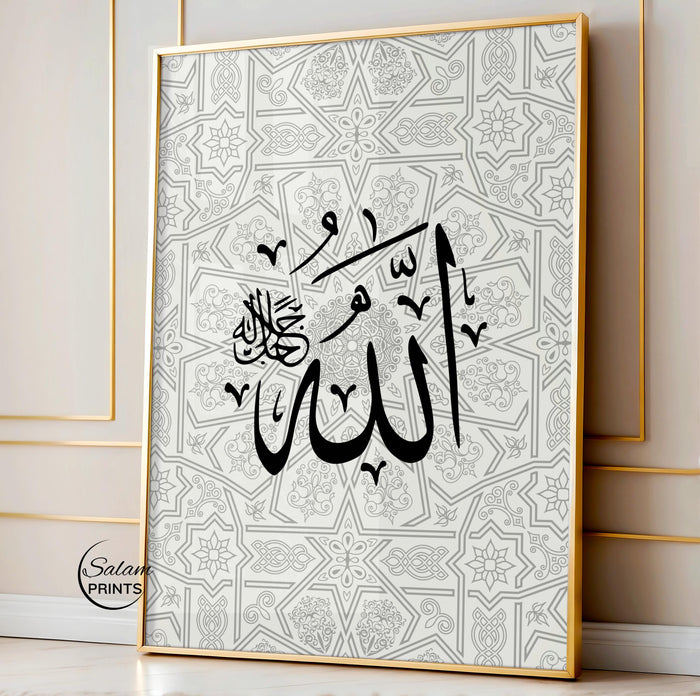 الله
جل جلاله
Salam
PRINTS